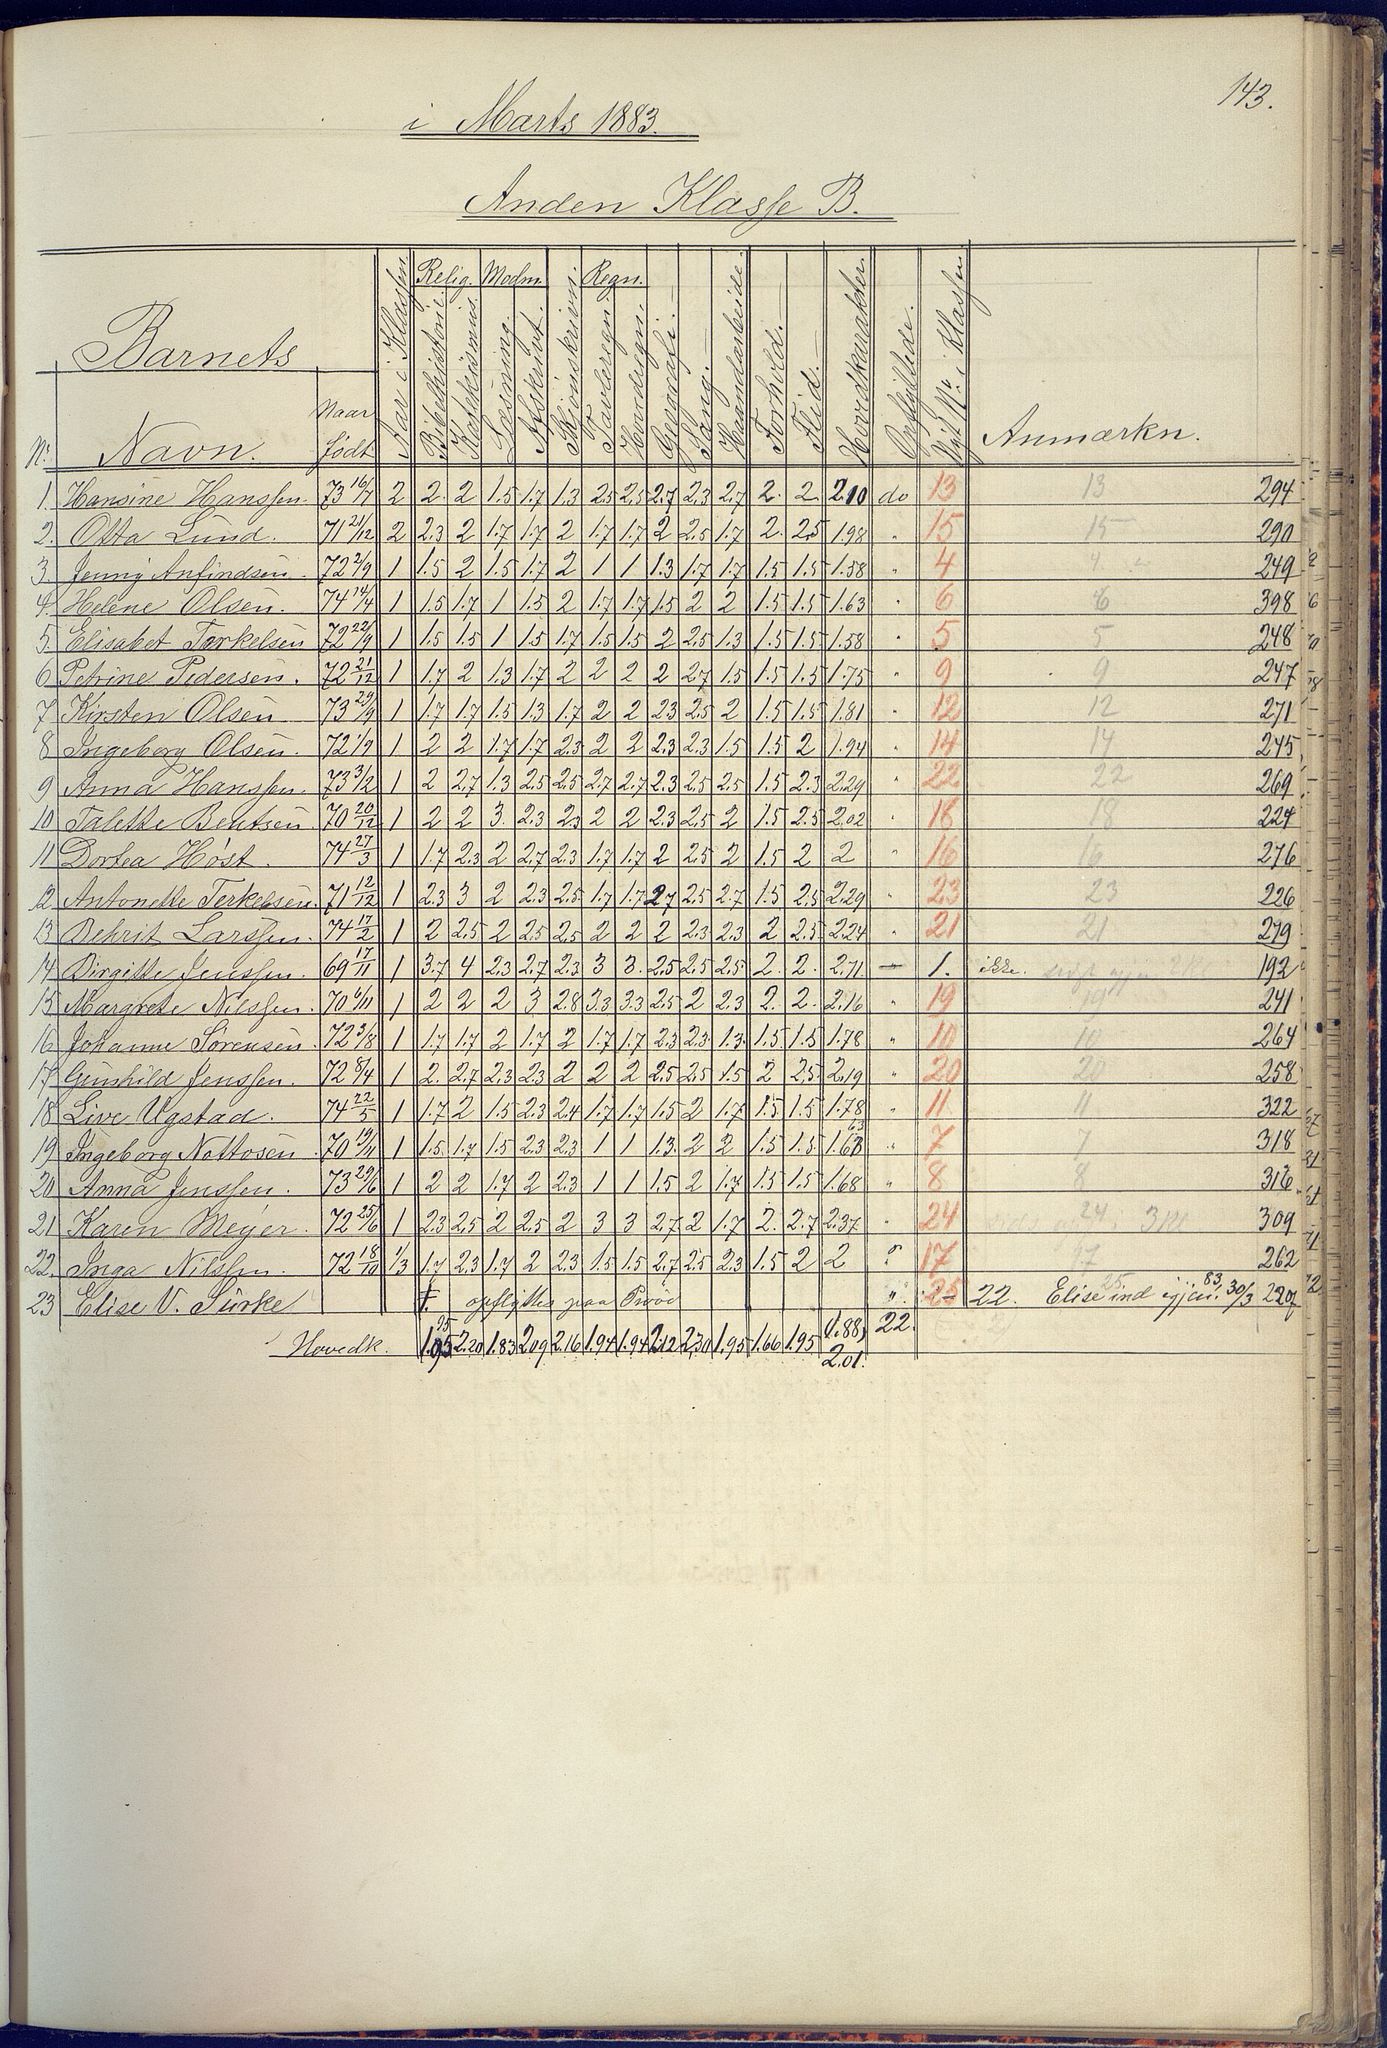 143.
i Marts 1883.
Anden Klasse B.
Barnets
No. Navn. Naar født Aar i Klassen. Relig. Bibelhistorie. Katekismus. Modm. Læsning. Afskrivt. Skjönskrivn. Regn. Tavleregn. Hovedregn. Geografi. Sang. Haandarbeide. Forhold. Flid. Hovedkarakter. Opflyttede. Nyt No. i Klassen Anmærkn.
1. Hanssine Hanssen. 73 16/7 2 2. 2 1.5 1.7 1.3 2.5 2.5 2.7 2.3 2.7 2. 2. 2.10 do 13 13 294
2. Otta Lund. 71 21/12 2 2.3 2 1.7 1.7 2 1.7 1.7 2 2.5 1.7 2. 2.5 1.98 " 15 15 290
3. Jenny Anfindsen. 72 2/9 1 1.5 2 1.5 1.7 2 1 1 1.3 1.7 1.7 1.5 1.5 1.58 " 4 4 249
4. Helene Olsen. 74 14/4 1 1.5 1.7 1 1.5 2 1.7 1.7 1.5 2 2 1.5 1.5 1.63 " 6 6 398
5. Elisabet Torkelsen 72 22/9 1 1.5 1.5 1 1.5 1.7 1.5 1.5 2 2.5 1.3 1.5 1.5 1.58 " 5 5 248
6 Petrine Pedersen. 72 21/12 1 1.7 2 1.3 1.7 2 2 2 2 2.7 1.5 1.5 1.5 1.75 " 9 9 247
7 Kirsten Olsen 73 29/9 1 1.7 1.7 1.5 1.3 1.7 2 2 2.3 2.5 2 1.5 1.5 1.81 " 12 12 271
8 Ingeborg Olsen. 72 1/9 1 2 2 1.7 1.7 2.3 2 2 2.3 2.3 1.5 1.5 2 1.94 " 14 14 245
9 Anna Hanssen. 73 3/12 1 2 2.7 1.3 2.5 2.5 2.7 2.7 2.3 2.5 2.5 1.5 2.3 2.29 " 22 22 269
10 Talette Bentsen. 70 20/12 1 2 2 3. 2.3 2.3 2 2 2.3 2.5 2 1.5 2.5 2.02 " 18 18 224
11 Dortea Höst. 74 27/3 1 1.7 2.3 2 2.7 2.3 1.7 1.7 2 2.5 2 1.5 2 2 " 16 16 276
12 Antonette Terkelsen. 71 12/12 1 2.3 3 2 2.3 2.5 1.7 1.7 2.7 2.5 2.7 1.5 2.5 2.29 " 23 23 226
13 Behrit Larssen. 74 17/2 1 2 2.5 2 2.5 2.5 2 2 2 2.3 2.3 2 2.5 2.24 " 21 21 279
14 Birgitte Jenssen. 69 17/11 1 3.7 4 2.3 2.7 2.3 3 3. 2.5 2.5 2.5 2. 2. 2.71 — 1. ikke. 192
15 Margrete Nilssen. 70 6/11 1 2 2 2 3 2.8 3.3 3.3 2.5 2 2.3 2. 2. 2.16 " 19 19 241
16 Johanne Sörensen. 72 3/8 1 1.7 1.7 2 1.7 2 1.7 1.7 2.3 2.3 1.3 1.5 1.5 1.78 " 10 10 264
17 Gunhild Jenssen. 72 8/4 1 2. 2.7 2.3 2.3 2 2 2 2.5 2.5 1.5 2 2.5 2.19 " 20 20 258
18 Live Ugstad. 74 22/5 1 1.7 2 1.5 2.3 2.4 1.7 1.7 1.5 2 1.7 1.5 1.5 1.78 " 11 11 322
19 Ingeborg Nottosen. 70 19/11 1 1.5. 1.7 1.5 2.3 2.3 1 1 1.3 2 2 1.5 1.5 1.63 63 " 7 7 318
20 Anna Jenssen. 73 29/6 1 2 2 1.7 2 2.3 1 1 1.5 2 1.7 1.5 1.5 1.68 " 8 8 316
21 Karen Meyer. 72 25/6 1 2.3 2.5 2 2.5 2 3 3 2.7 2 1.7 2. 2.7 2.37 " 24 24 3 Kl 309
22. Inga Nilssen. 72 18/10 1/3 1.7 2.3 1.7 2 2.3 1.5 1.5 2.7 2.5 2.3 1.5 2 2 " 17 17 262
23 Elise V. Türke F. opflyttes paa Prøve " 25 22. 25. Elise ind igjen. 83. 30/3 220
Hovedk. 95 1.95 2.20 1.83 2.09 2.16 1.94 1.94 2.12 2.30 1.95 1.66 1.95 (1.88) 22.
2.01.